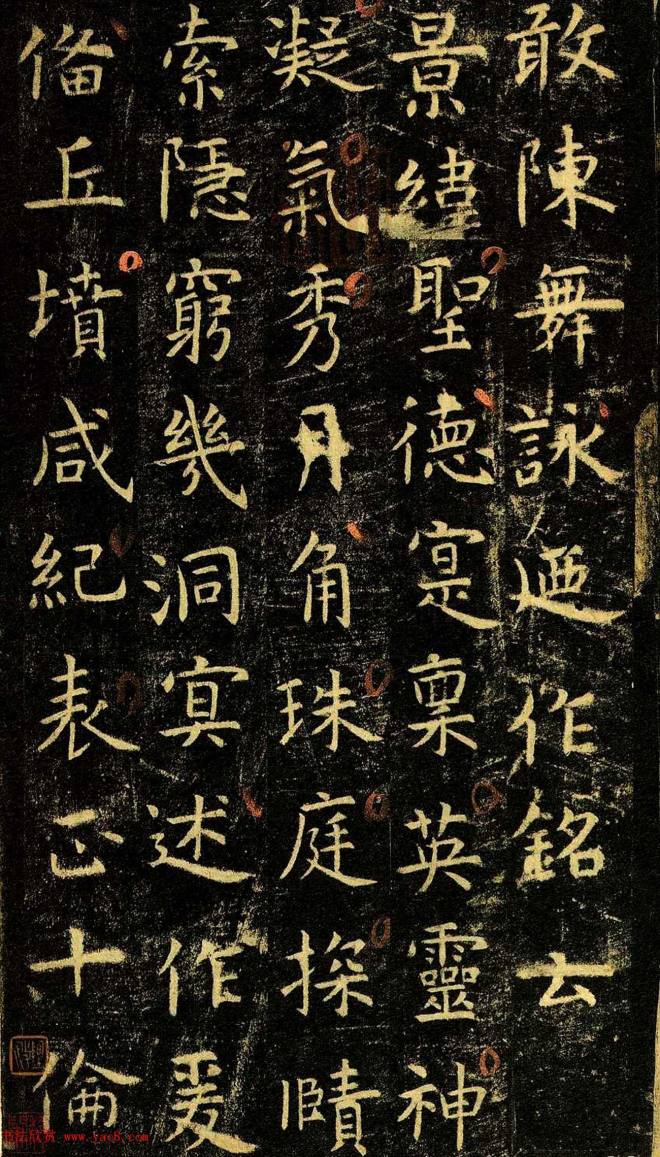 敢陳舞詠迺作銘云
景緯聖德寔稟英靈神
凝氣秀月角珠庭探賾
索隱窮幾洞冥述作爰
俻丘墳咸紀表正十倫
书法欣赏 www.yac8.com